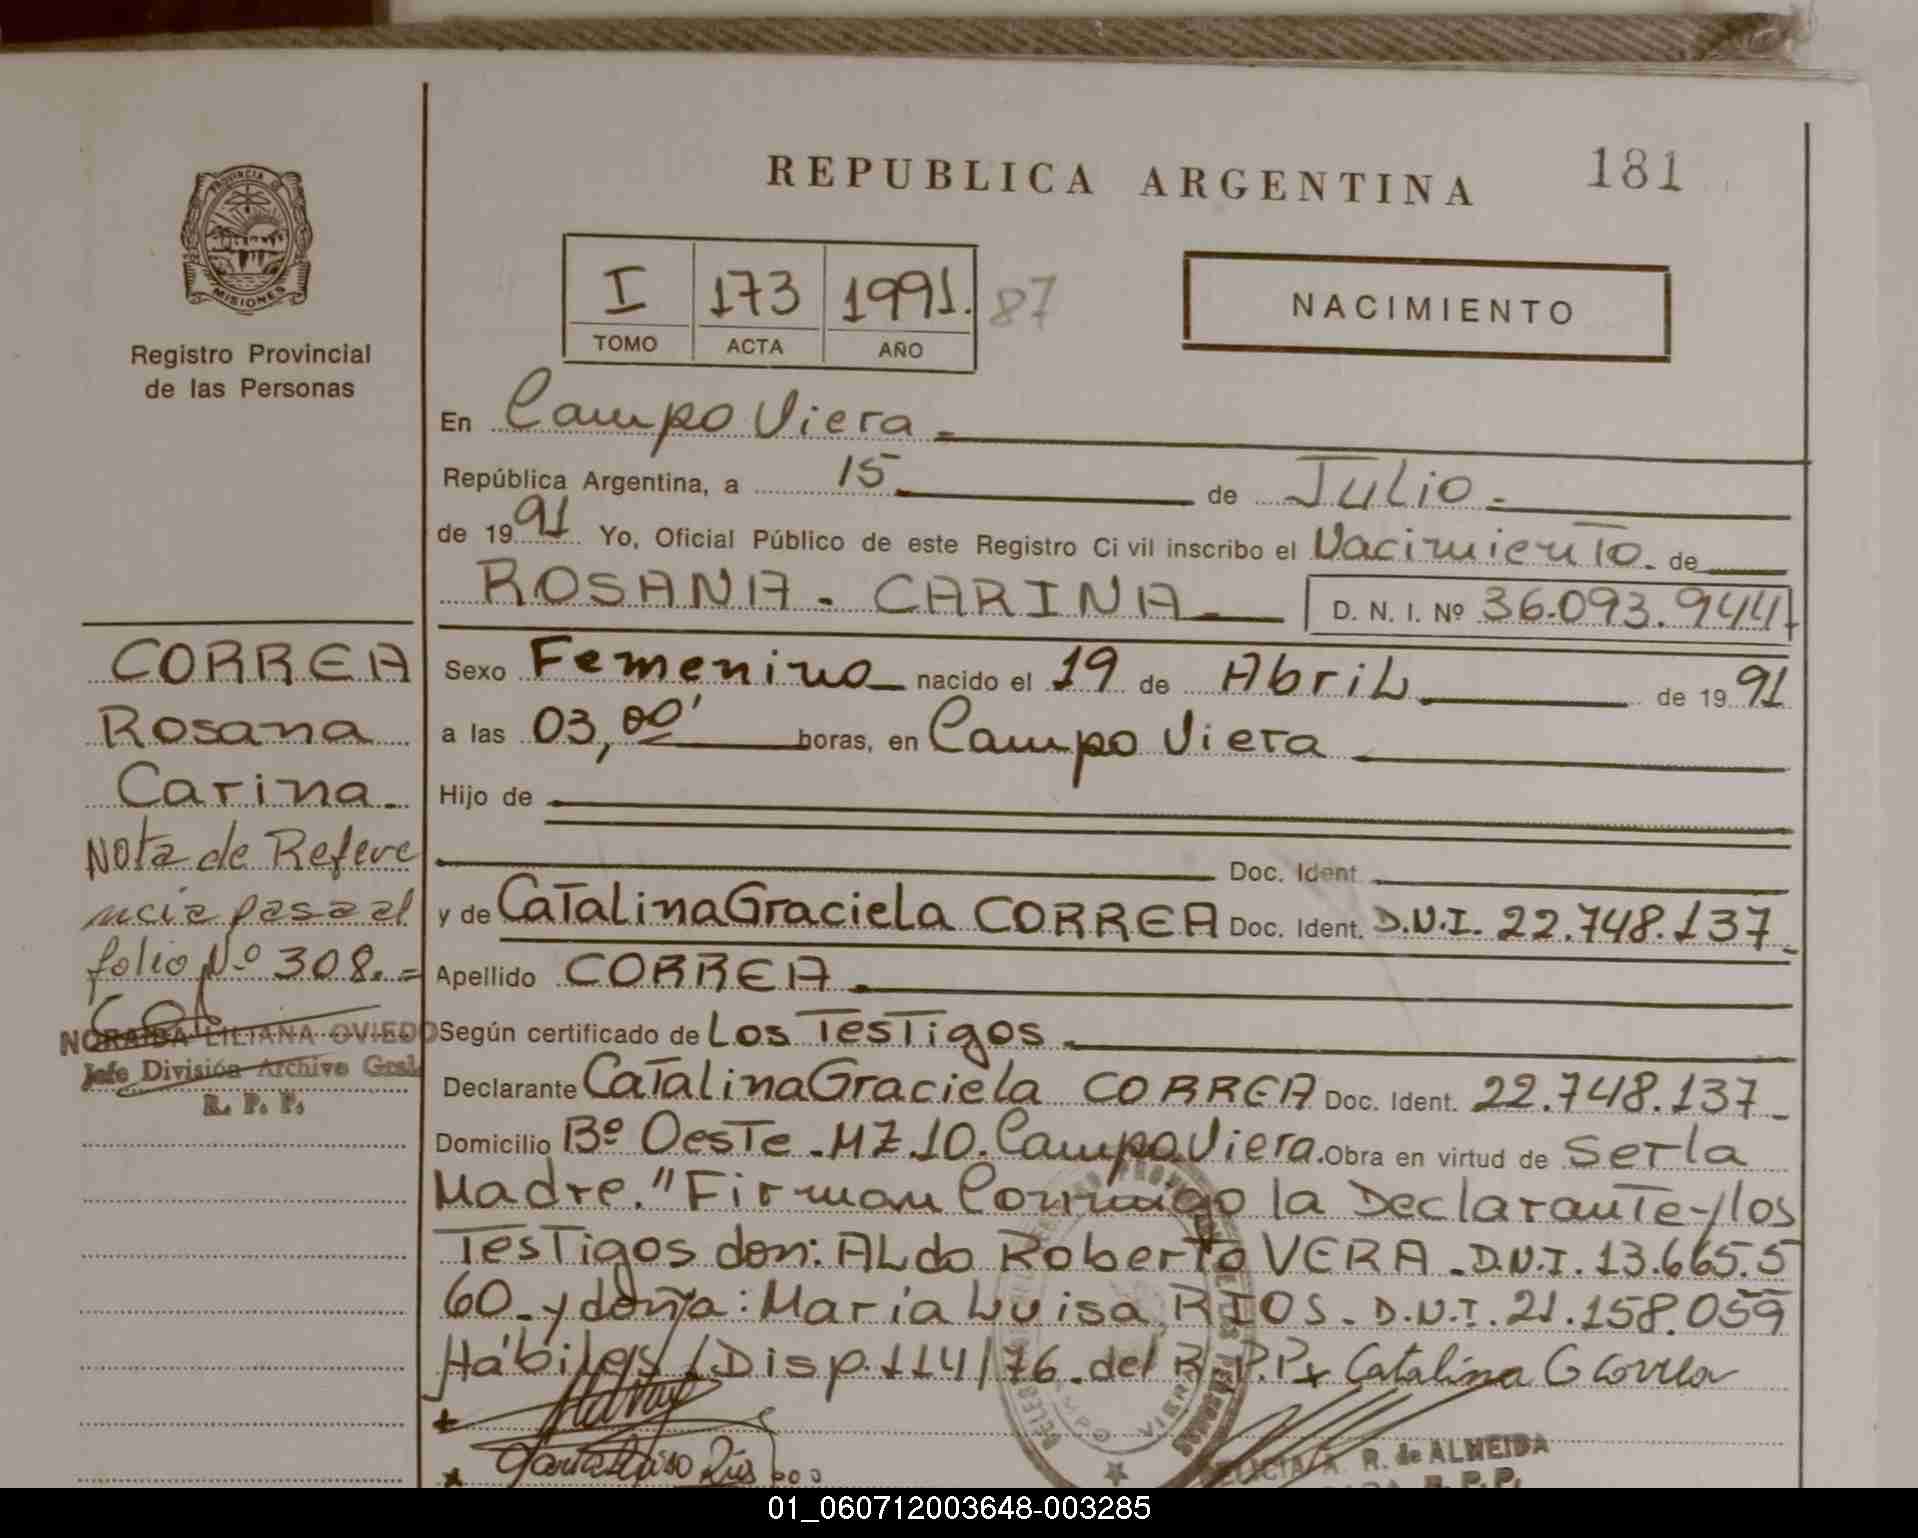 REPUBLICA ARGENTINA
181
PROVINCIA DE
MISIONES
Registro Provincial
de las Personas
I 173 1991. 87
TOMO ACTA AÑO
NACIMIENTO
En Campo Viera
República Argentina, a 15 de Julio
de 1991 Yo, Oficial Público de este Registro Civil inscribo el Nacimiento de
ROSANA - CARINA D. N. I. Nº 36.093.944
CORREA
Rosana
Carina
Nota de Refere
ncia pasa al
folio Nº 308.=
NORAIDA LILIANA OVIEDO
Jefe División Archivo Gral.
R. P. P.
Sexo Femenino nacido el 19 de Abril de 1991
a las 03,00' horas, en Campo Viera
Hijo de
Doc. Ident.
y de Catalina Graciela CORREA Doc. Ident. D.N.I. 22.748.137
Apellido CORREA
Según certificado de Los Testigos
Declarante Catalina Graciela CORREA Doc. Ident. 22.748.137
Domicilio Bº Oeste - MZ.10. Campo Viera. Obra en virtud de Ser la
Madre." Firman Conmigo la Declarante y los
Testigos don: ALdo Roberto VERA - D.N.I. 13.665.5
60 - y doña: María Luisa RIOS - D.N.I. 21.158.059
Hábiles/Disp. 114/76 - del R.P.P. Catalina G Correa
María Luisa Rios
R. de ALMEIDA
R.P.P.
CAMPO VIERA
01_060712003648-003285